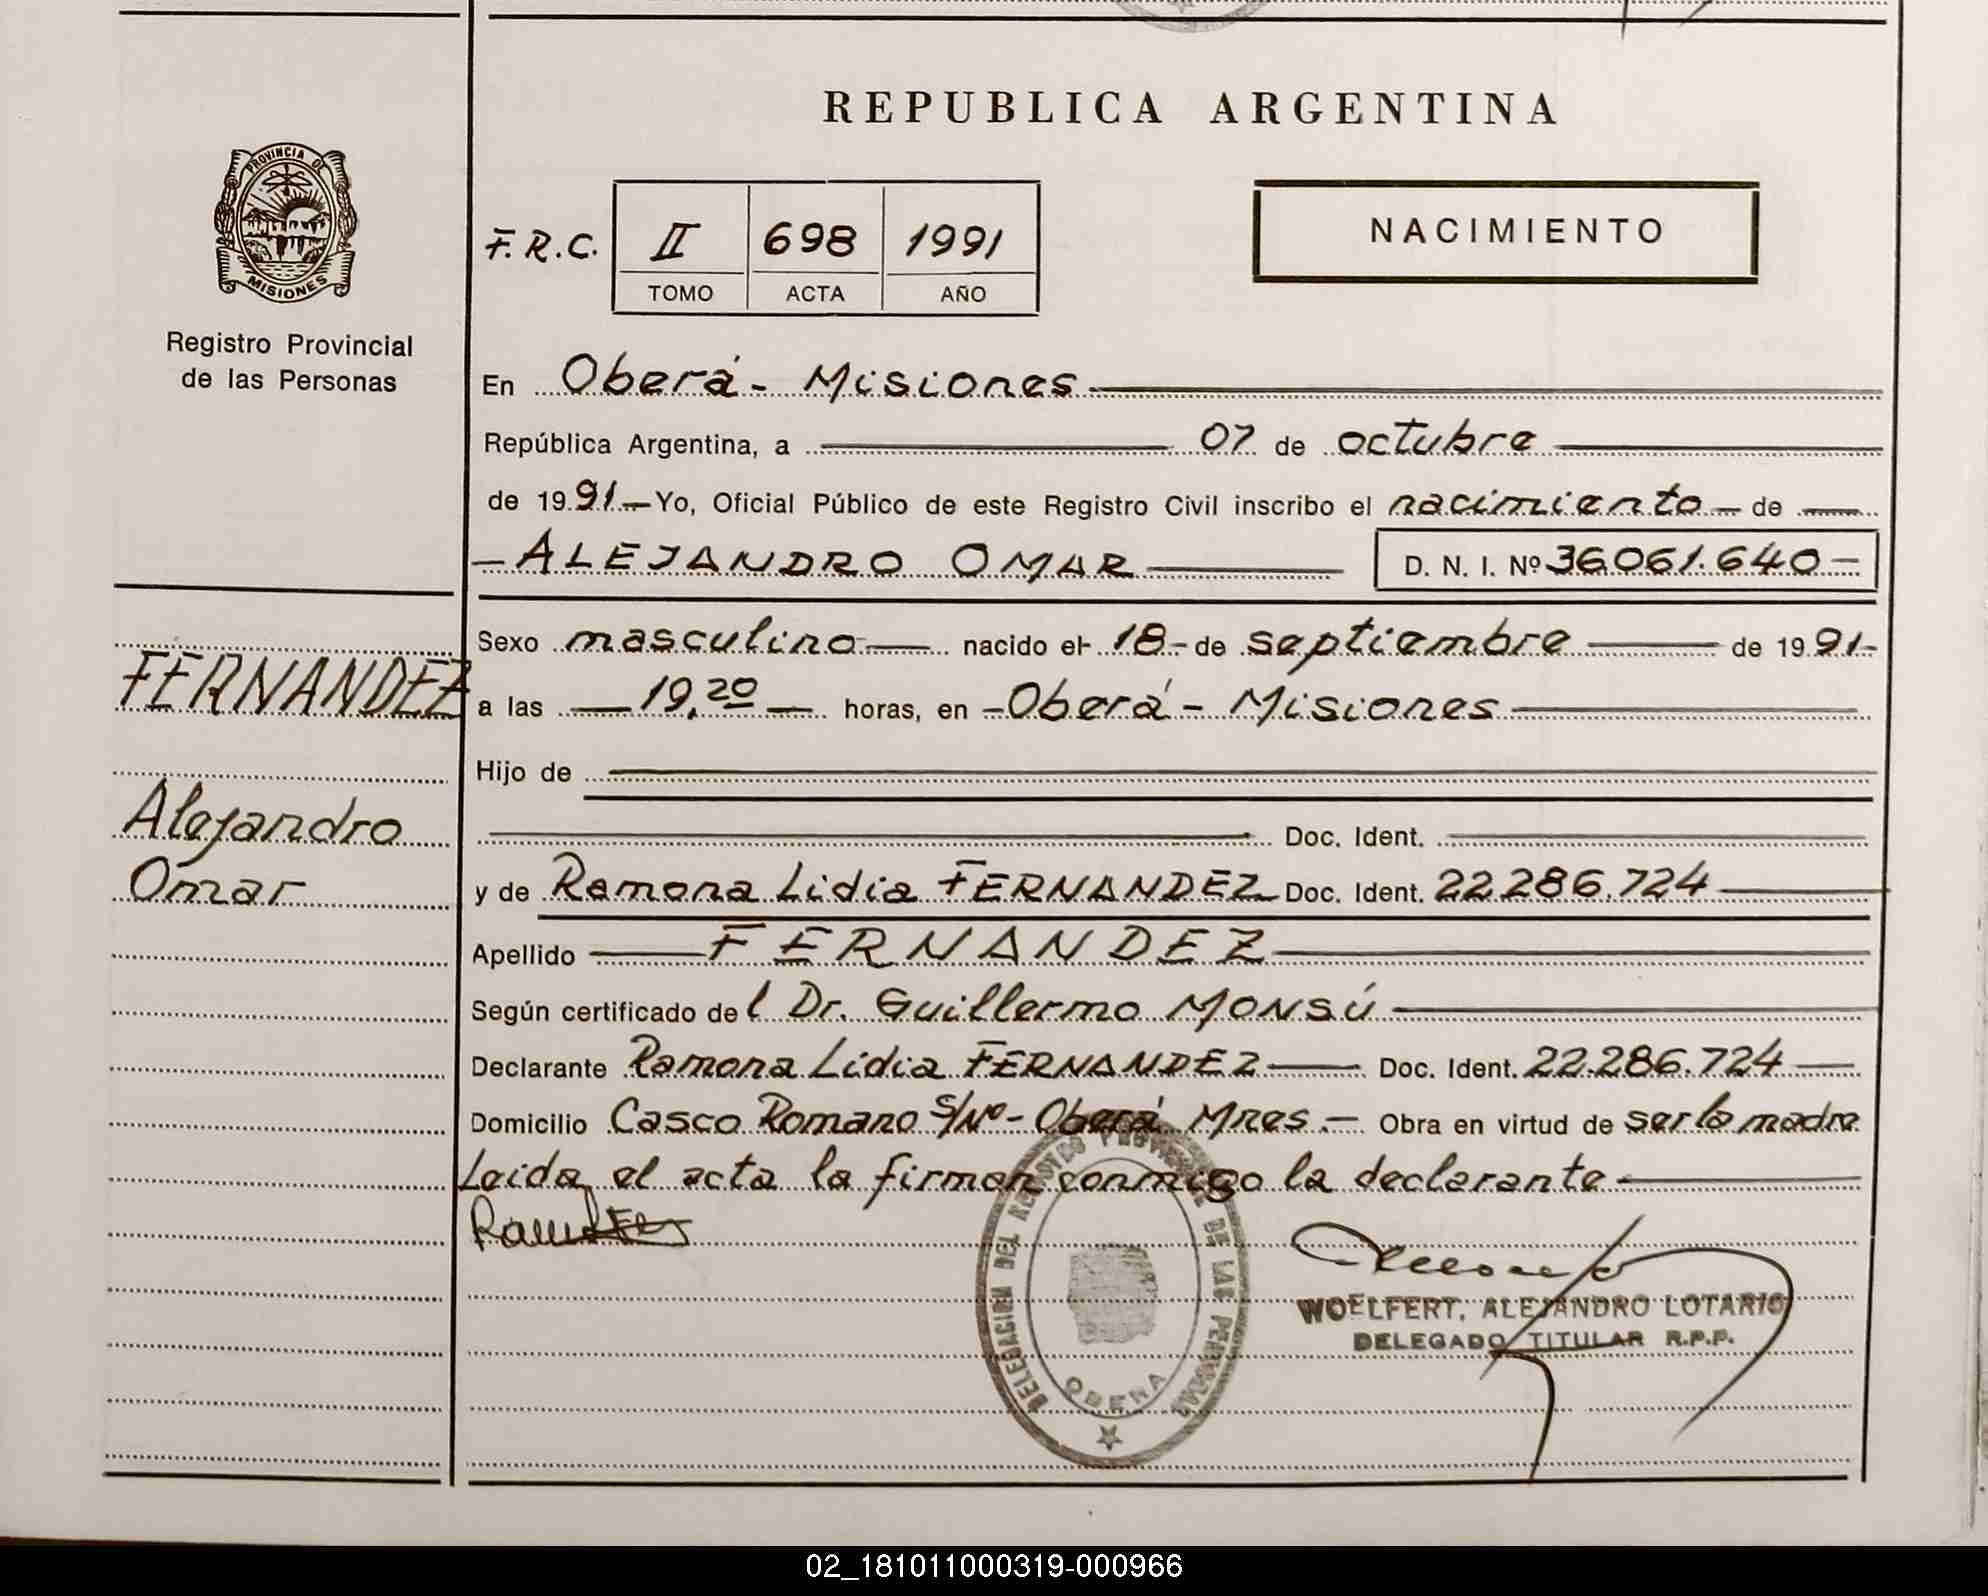 REPUBLICA ARGENTINA
PROVINCIA DE
MISIONES
Registro Provincial
de las Personas
F.R.C. II 698 1991
TOMO ACTA AÑO
NACIMIENTO
En Oberá - Misiones
República Argentina, a 07 de octubre
de 1991 - Yo, Oficial Público de este Registro Civil inscribo el nacimiento - de
- ALEJANDRO OMAR D. N. I. Nº 36.061.640 -
FERNANDEZ
Alejandro
Omar
Sexo masculino nacido el 18 - de septiembre de 1991 -
a las 19,20 horas, en - Oberá - Misiones
Hijo de
Doc. Ident.
y de Ramona Lidia FERNANDEZ Doc. Ident. 22.286.724
Apellido FERNANDEZ
Según certificado del Dr. Guillermo MONSÚ
Declarante Ramona Lidia FERNANDEZ Doc. Ident. 22.286.724
Domicilio Casco Romano S/Nº - Oberá Mnes. - Obra en virtud de ser la madre
Leida el acta la firman conmigo la declarante
DELEGACION DEL REGISTRO PROVINCIAL DE LAS PERSONAS
OBERA
WOELFERT, ALEJANDRO LOTARIO
DELEGADO TITULAR R.P.P.
02_181011000319-000966